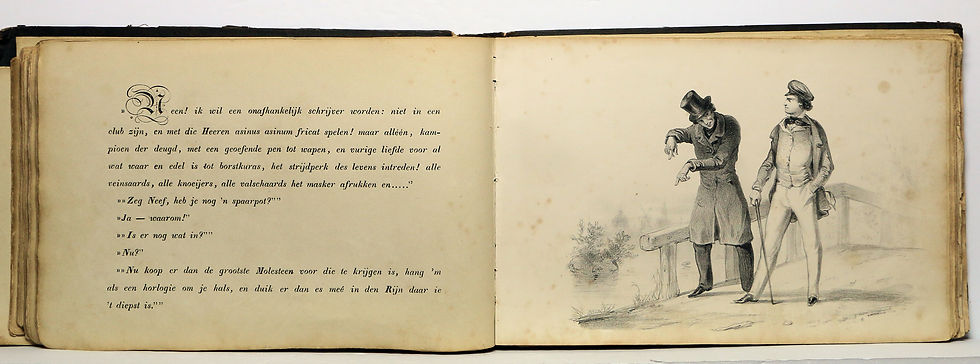 »Neen! ik wil een onafhankelijk schrijver worden: niet in een
club zijn, en met die Heeren asinus asinum fricat spelen! maar alléén, kam-
pioen der deugd, met een geoefende pen tot wapen, en vurige liefde voor al
wat waar en edel is tot borstkuras, het strijdperk des levens intreden! alle
veinsaards, alle knoeijers, alle valschaards het masker afrukken en....."
»»Zeg Neef, heb je nog 'n spaarpot?""
»Ja — waarom!"
»»Is er nog wat in?""
»Nu?"
»»Nu koop er dan de grootste Molesteen voor die te krijgen is, hang 'm
als een horlogie om je hals, en duik er dan es meé in den Rijn daar ie
't diepst is.""